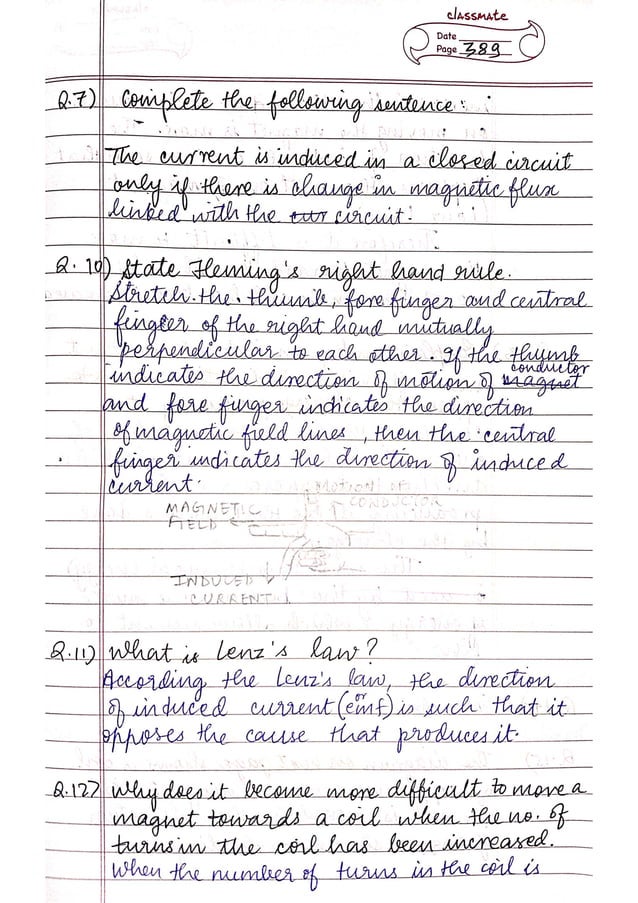 classmate
Date
Page 389
Q.7) Complete the following sentence:
The current is induced in a closed circuit
only if there is change in magnetic flux
linked with the circuit.
Q. 10) State Fleming's right hand rule.
Stretch the thumb, fore finger and central
finger of the right hand mutually
perpendicular to each other. If the thumb
indicates the direction of motion of magnet conductor
and fore finger indicates the direction
of magnetic field lines, then the central
finger indicates the direction of induced
current.
MOTION OF
CONDUCTOR
MAGNETIC
FIELD
INDUCED
CURRENT
Q.11) What is Lenz's law?
According the Lenz's law, the direction
of induced current (or emf) is such that it
opposes the cause that produces it.
Q.12) Why does it become more difficult to move a
magnet towards a coil when the no. of
turns in the coil has been increased.
When the number of turns in the coil is